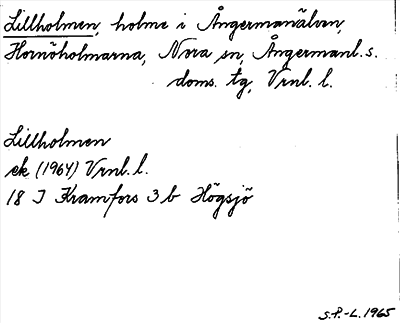 Lillholmen, holme i Ångermanälven,
Hornöholmarna, Nora sn, Ångermanl. s.
doms. tg, Vrnl. l.
Lillholmen
ek (1964) Vrnl. l.
18 I Kramfors 3 b Högsjö
S.P.-L. 1965